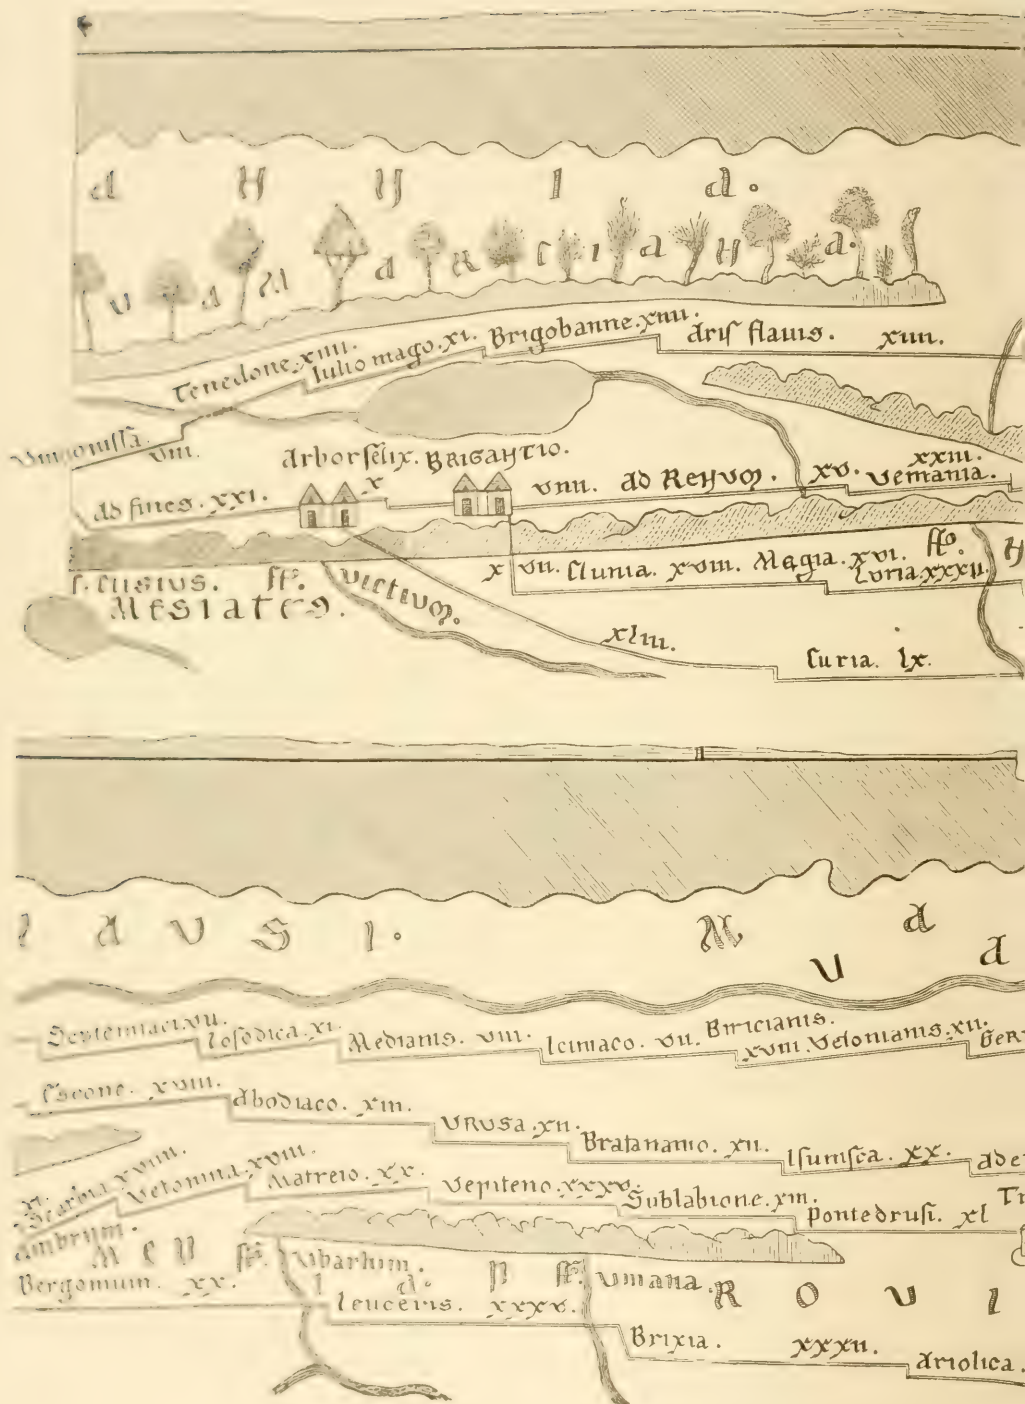 a H H I a.
v a M a R C I a H a.
Tenedone. xiiii. Iulio mago. xi. Brigobanne. xiiii. ariſ flauis. xiiii.
viii.
arbor felix. BRIGAHTIO. xxiii.
ad fines. XXI. x viiii. ad ReHum. xv. vemania.
x vii. Clunia. xviii. Magia. xvi. fl⁹. H
Curia. xxxii.
f. Cusius. fl⁹. victium.
MESIATES.
xliii.
Curia. lx.
l a v S I. M a
v a
Septemiaci. vii. Losodica. xi. Medianis. viii. Iciniaco. vii. Biricianis.
xviii. Vetonianis. xii. Ger
Escone. xviii. abodiaco. xiii. URUSa. xii. Bratananio. xii. Isunisca. xx. ad e
xi. Scarbia. xviiii. Vetonina. xviii. Matreio. xx. vepiteno. xxxv. Sublabione. xiii. Pontedrusi. xl Tr
ambrum.
M e D fl⁹. Vbarhim. fl⁹. Vmana. R O V I
Bergomum. xx. l a. p
leuceris. xxxv.
Brixia. xxxii. ariolica.